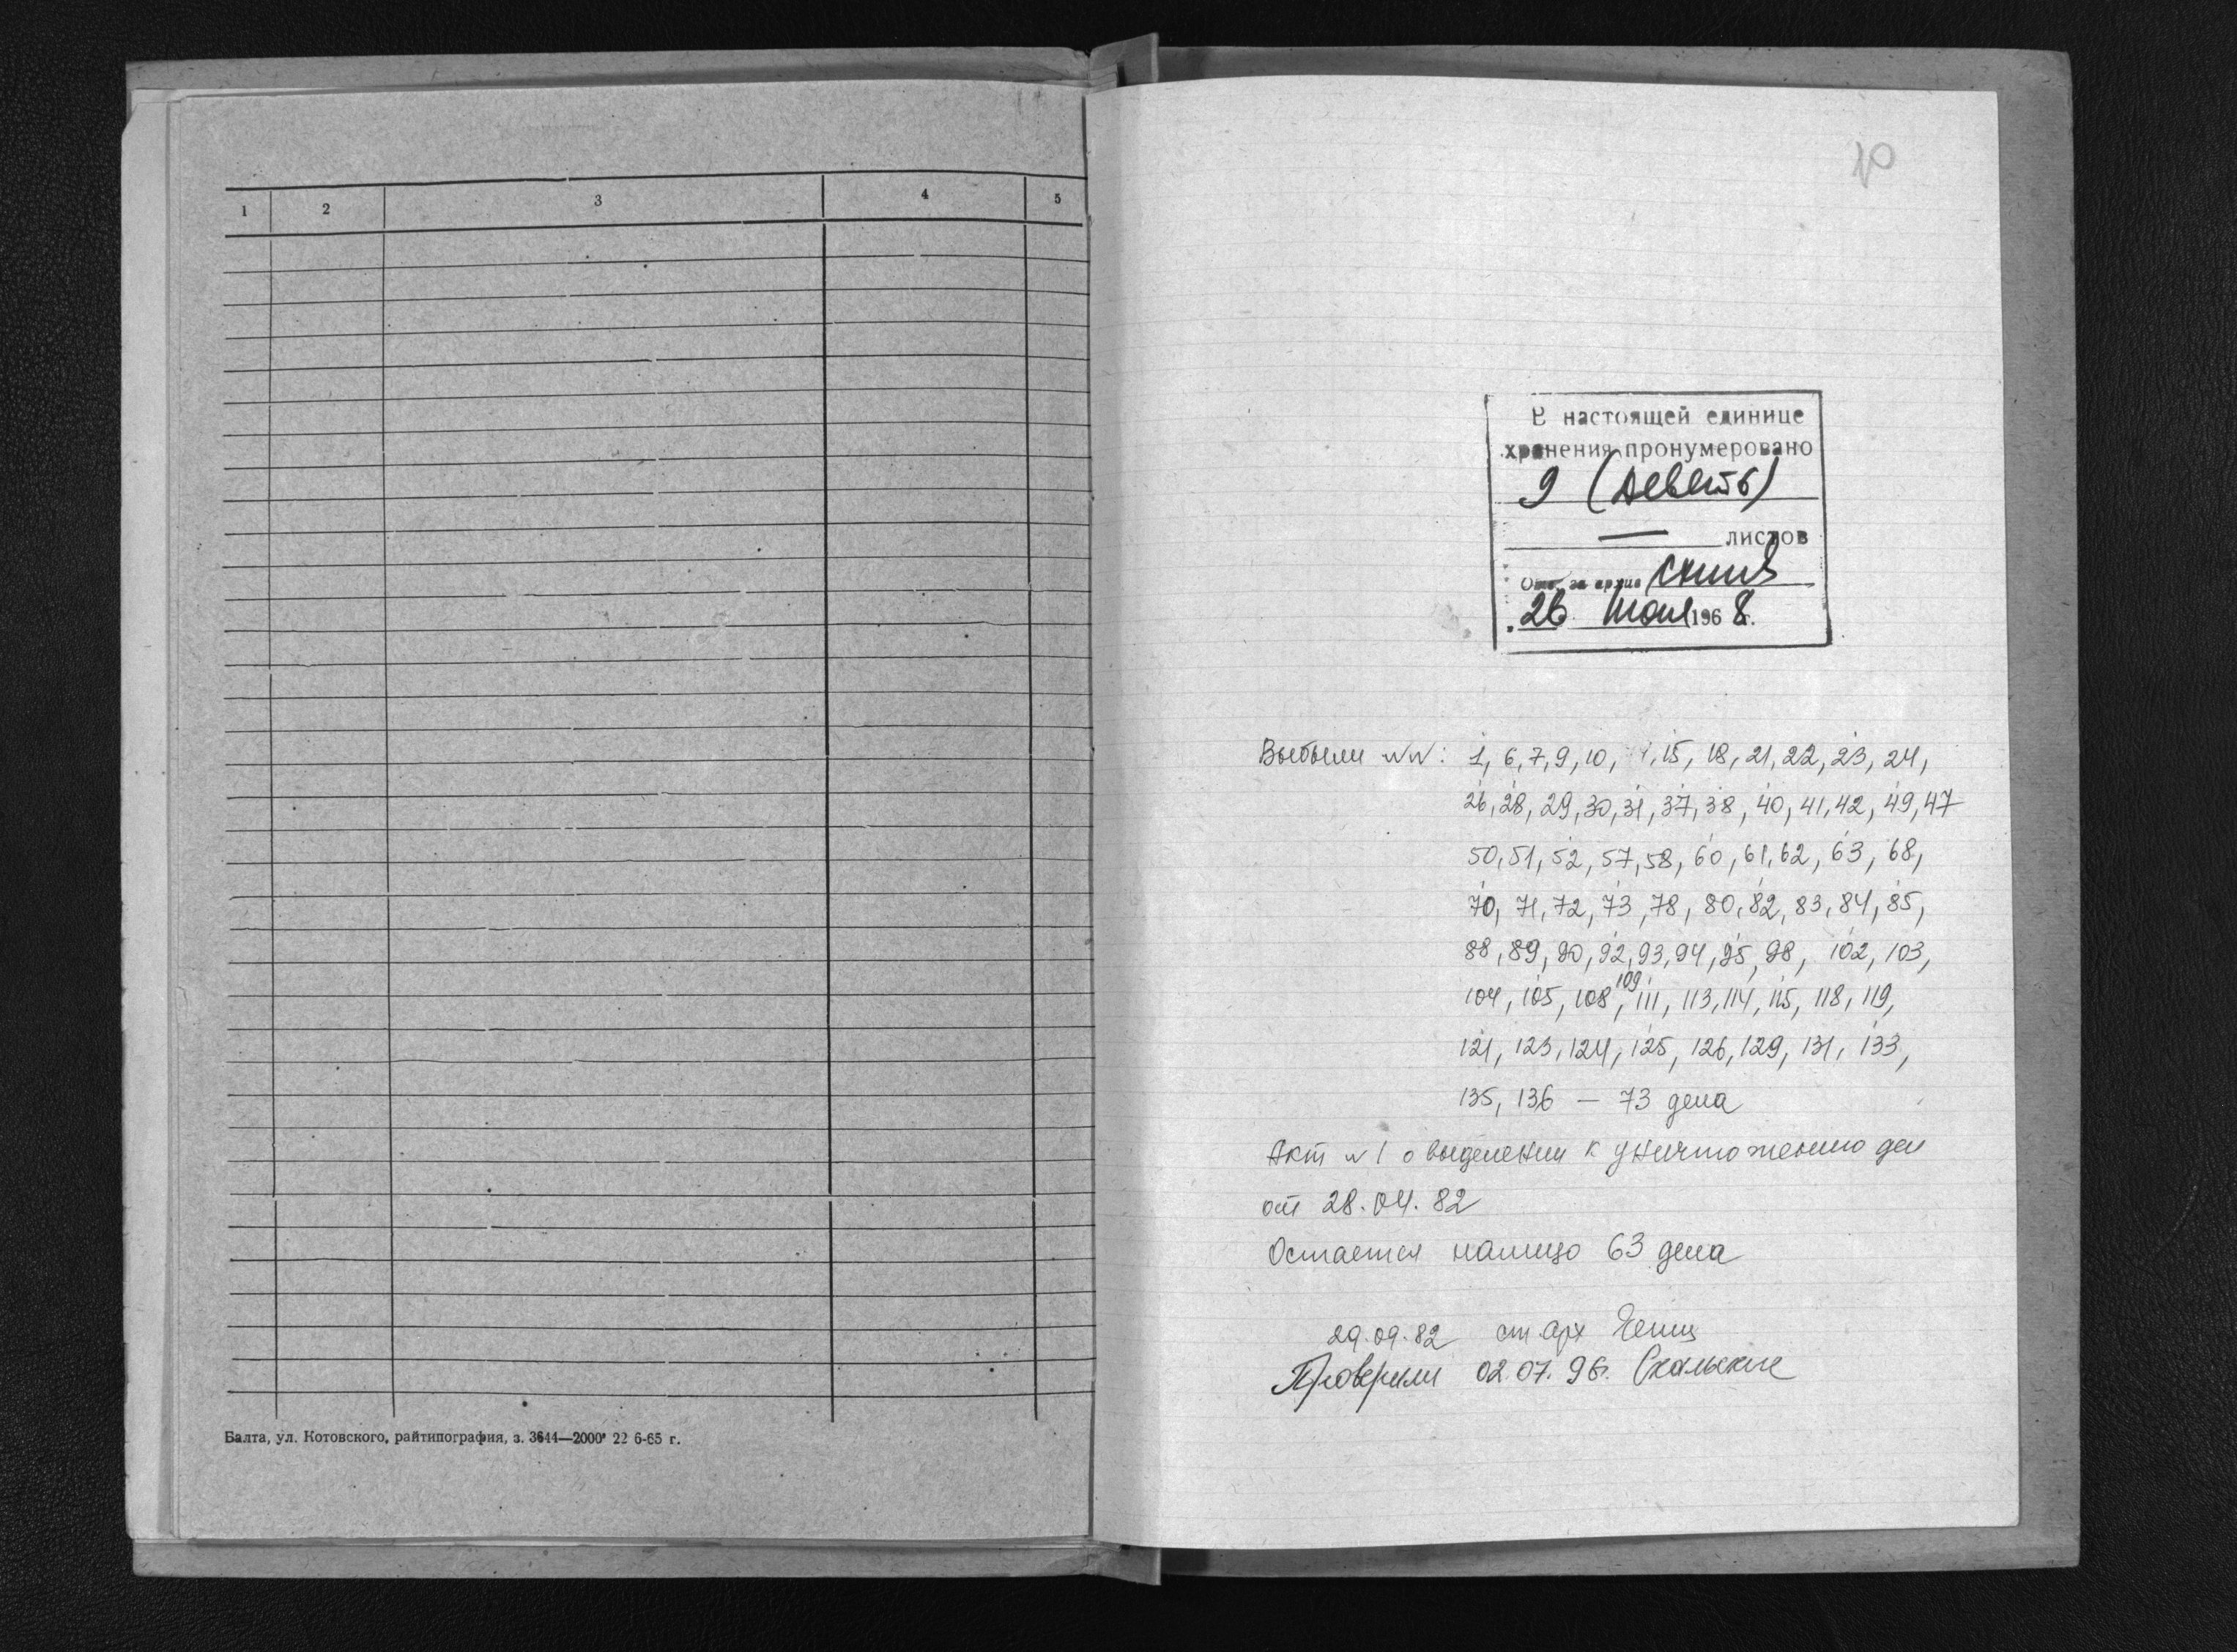 1 2 3 4 5
Балта, ул. Котовского, райтипография, з. 3644—2000 22 6-65 г.
10
В настоящей единице
хранения пронумеровано
9 (девять)
— листов
Отв. за архив
26 мая 1968 г.
Выбыли №№: 1, 6, 7, 9, 10, 15, 18, 21, 22, 23, 24,
26, 28, 29, 30, 31, 37, 38, 40, 41, 42, 49, 47
50, 51, 52, 57, 58, 60, 61, 62, 63, 68,
70, 71, 72, 73, 78, 80, 82, 83, 84, 85,
88, 89, 90, 92, 93, 94, 95, 98, 102, 103,
104, 105, 108, 109, 111, 113, 114, 115, 118, 119,
121, 123, 124, 125, 126, 129, 131, 133,
135, 136 — 73 дела
Акт №1 о выделении к уничтожению дел
от 28.04.82
Остается налицо 63 дела
29.09.82 ст. арх
Проверили 02.07.96.